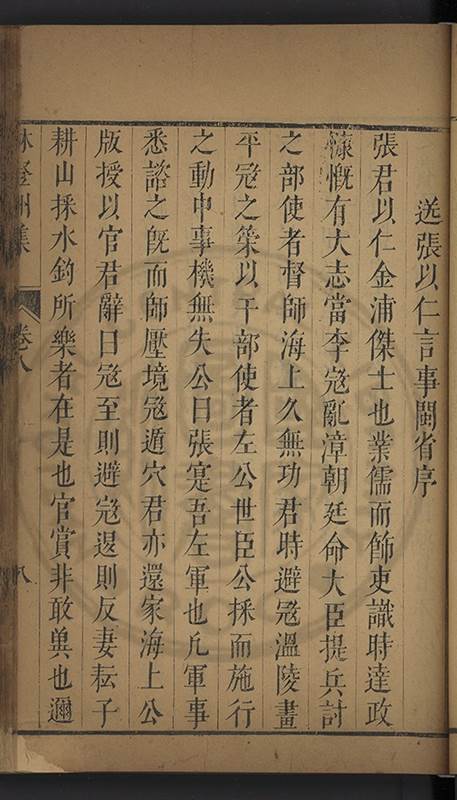 送張以仁言事閩省序
張君以仁金浦傑士也業儒而飾吏識時達政
慷慨有大志當李寇亂漳朝廷命大臣提兵討
之部使者督師海上久無功君時避寇溫陵畫
平寇之策以干部使者左公世臣公採而施行
之動中事機無失公曰張寔吾左軍也凡軍事
悉諮之旣而師壓境寇遁穴君亦還家海上公
版授以官君辭曰寇至則避寇退則反妻耘子
耕山採水釣所樂者在是也官賞非敢兾也邇
林登州集 卷八 八